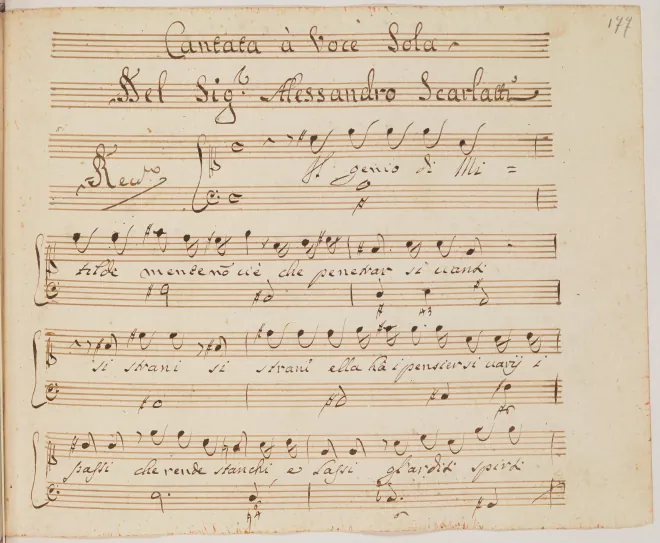 177
Cantata à Voce Sola
Del Sig.r Alessandro Scarlatti
Rec.vo
Il genio di Mi =
tilde mente nõ u'è che penetrar si uanti
si strani si strani ella hà i pensier si uarÿ i
passi che rende stanchi e lassi gl'arditi spirti